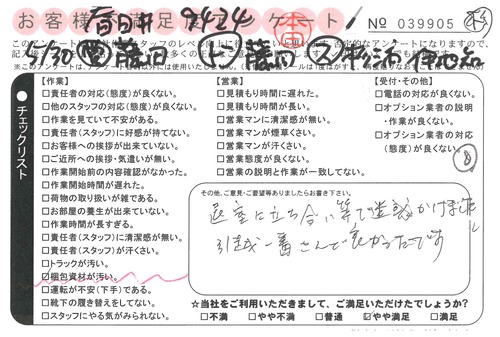 お客様満足アンケート
No 039905
春日井 2424
このアンケートは
4/30
藤田
チェックリスト
【作業】
□責任者の対応(態度)が良くない。
□他のスタッフの対応(態度)が良くない。
□作業を見ていて不安がある。
□責任者(スタッフ)に好感が持てない。
□お客様への挨拶が出来ていない。
□ご近所への挨拶・気遣いが無い。
□作業開始前の内容確認がなかった。
□作業開始時間が遅れた。
□荷物の取り扱いが雑である。
□お部屋の養生が出来ていない。
□作業時間が長すぎる。
□責任者(スタッフ)に清潔感が無い。
□責任者(スタッフ)が汗くさい。
□トラックが汚い。
☑梱包資材が汚い。
□運転が不安(下手)である。
□靴下の履き替えをしてない。
□スタッフにやる気がみられない。
【営業】
□見積もり時間に遅れた。
□見積もり時間が長い。
□営業マンに清潔感が無い。
□営業マンが煙草くさい。
□営業マンが汗くさい。
□営業態度が良くない。
□営業の説明と作業が一致してない。
【受付・その他】
□電話の対応が良くない。
□オプション業者の説明・作業が良くない。
□オプション業者の対応(態度)が良くない。
8
その他、ご意見・ご要望等ありましたらお書き下さい。
退室に立ち合い等で迷惑かけました
引越一番さんで良かったです
☆当社をご利用いただきまして、ご満足いただけてしょうか?
□不満 □やや不満 □普通 ☑やや満足 □満足